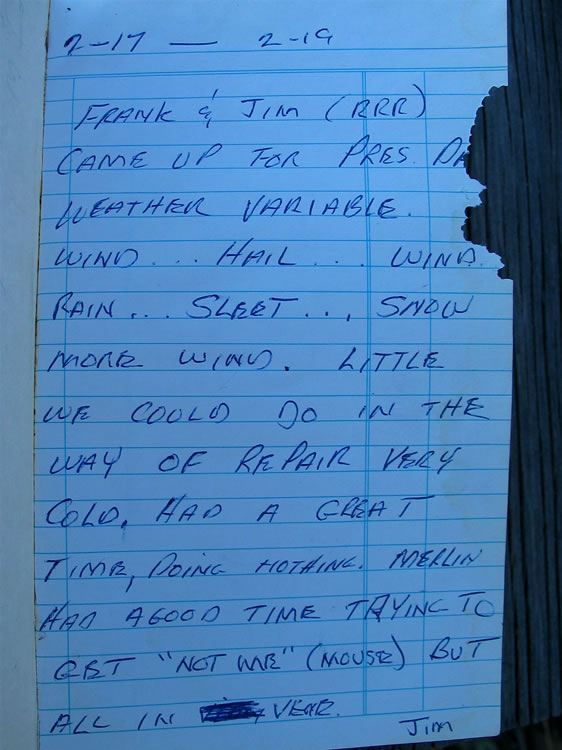 2-17 — 2-19
FRANK & JIM (RRR)
CAME UP FOR PRES. DA
WEATHER VARIABLE.
WIND... HAIL... WIND.
RAIN... SLEET..., SNOW
MORE WIND. LITTLE
WE COULD DO IN THE
WAY OF REPAIR VERY
COLD. HAD A GREAT
TIME, DOING NOTHING. MERLIN
HAD A GOOD TIME TRYING TO
GET "NOT ME" (MOUSE) BUT
ALL IN VENE.
JIM